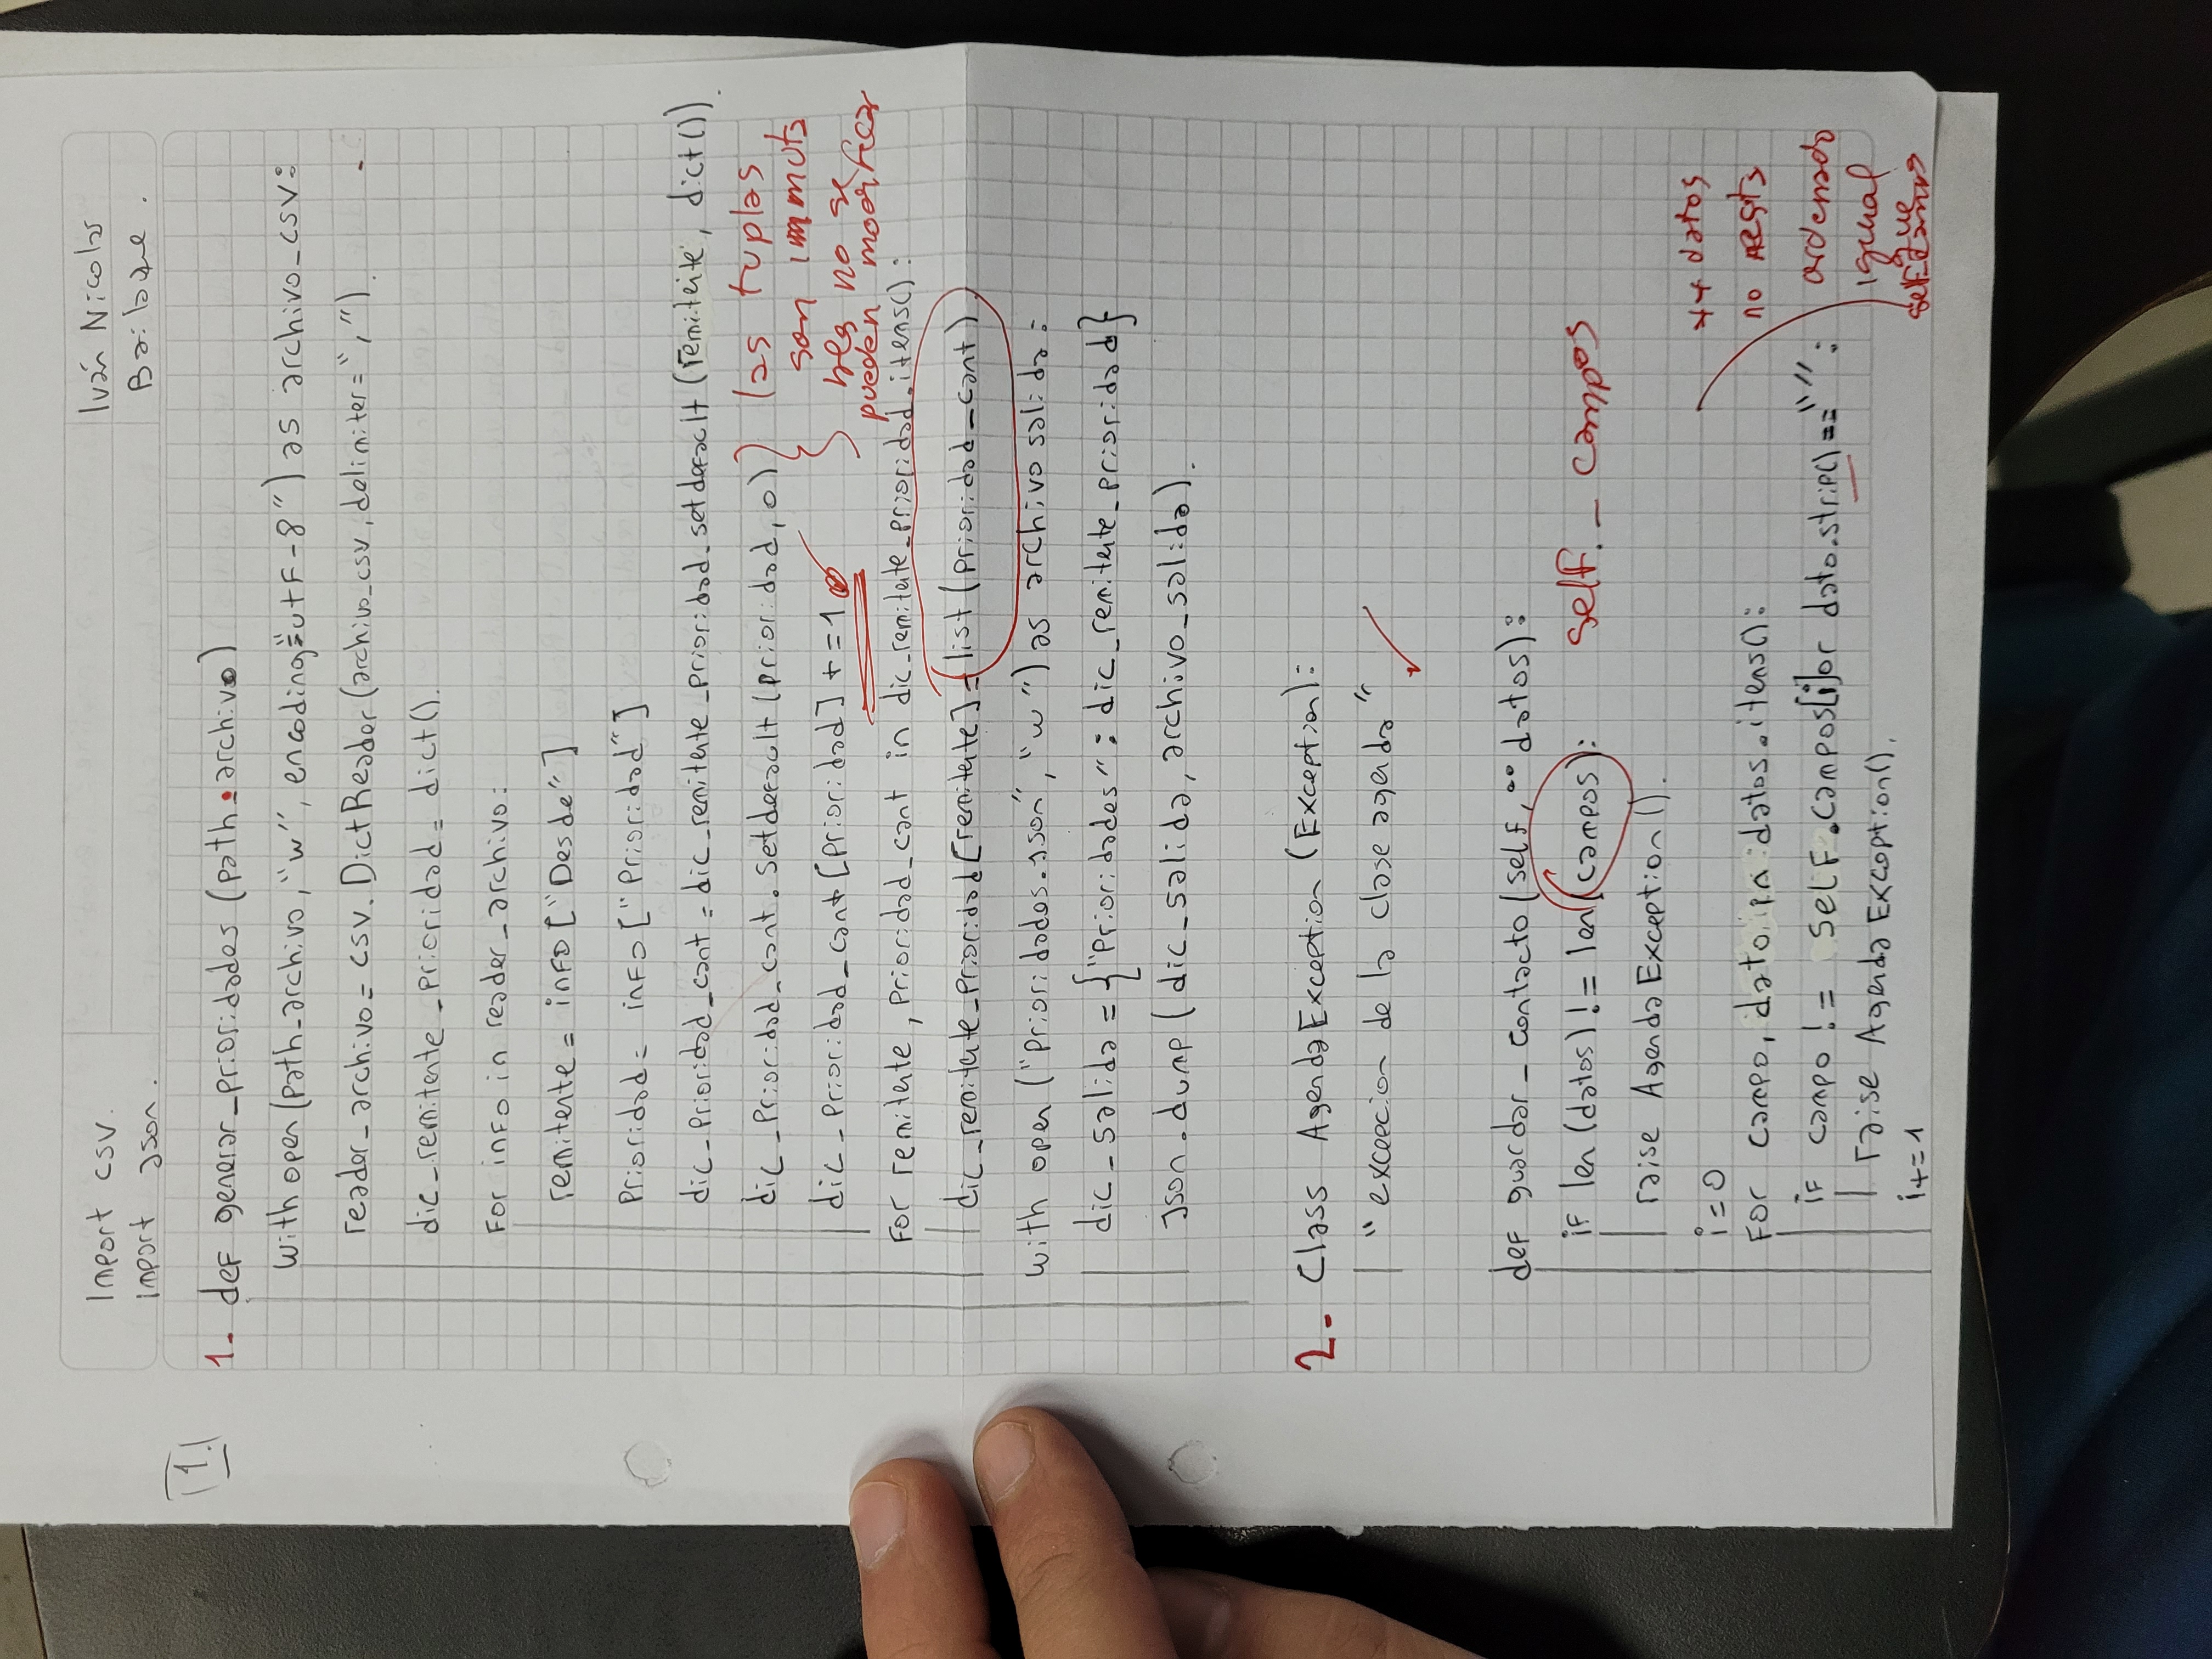 Import csv.
Import Json.
Iván Nicolas
Bailaque.
1.
1. def generar_prioridades (path_archivo)
with open(path_archivo, "w", encoding="utf-8") as archivo_csv:
reader_archivo = csv.DictReader(archivo_csv, delimiter=",").
dic_remitente_prioridad = dict().
For info in reader_archivo:
remitente = info["Desde"]
Prioridad = info["Prioridad"]
dic_Prioridad_cant = dic_remitente_prioridad.setdefault(remitente, dict()).
dic_Prioridad_cant.setdefault(prioridad, 0)
dic_Prioridad_cant[prioridad] += 1
las tuplas
son inmuta
bles no se
pueden modificar
For remitente, prioridad_cant in dic_remitente_prioridad.items():
dic_remitente_prioridad[remitente] = list(prioridad_cant).
with open ("Prioridades.json", "w") as archivo salida:
dic_salida = {"Prioridades": dic_remitente_prioridad}
Json.dump(dic_salida, archivo_salida).
2. Class AgendaException (Exception):
"excepcion de la clase agenda"
def guardar_contacto(self, **datos):
if len(datos) != len(campos):
self._campos
raise AgendaException().
i=0
For campo, dato in datos.items():
if campo != self.campos[i] or dato.strip() == "":
raise AgendaException().
i+=1
** datos
no
ordenado
igual
que
self.campos